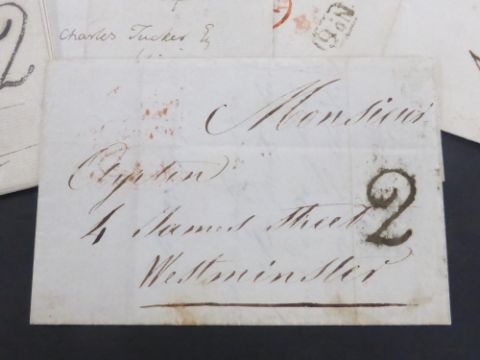 2
Charles Tucker Esq
No
Monsieur
Ayrton
4 James Street
2
Westminster